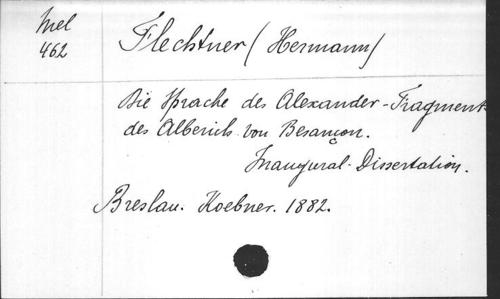 Mel
462
Flechtner (Hermann)
Die Sprache des Alexander-Fragments
des Alberich von Besançon.
Inaugural-Dissertation.
Breslau. Koebner. 1882.